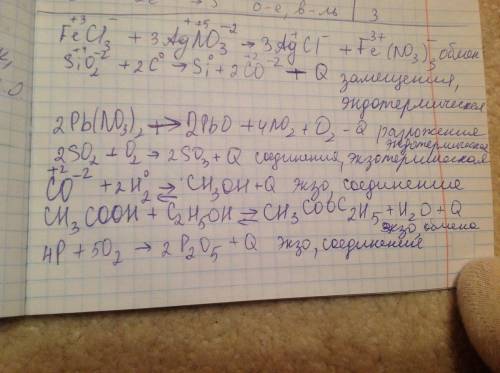 о-е, в-ль 3
Fe⁺³Cl₃⁻ + 3Ag⁺N⁺⁵O₃⁻² → 3Ag⁺Cl⁻ + Fe³⁺(NO₃)₃⁻, обмен
SiO₂⁻² + 2C⁰ → Si⁰ + 2C⁺²O⁻² - Q замещения,
эндотермическая
2Pb(NO₃)₂ → 2PbO + 4NO₂ + O₂ - Q разложение
эндотермическая
2SO₂ + O₂ → 2SO₃ + Q соединения, экзотермическая
C⁺²O⁻² + 2H₂⁰ ⇄ CH₃OH + Q экзо, соединение
CH₃COOH + C₂H₅OH ⇄ CH₃COOC₂H₅ + H₂O + Q
экзо, обмена
4P + 5O₂ → 2P₂O₅ + Q экзо, соединения